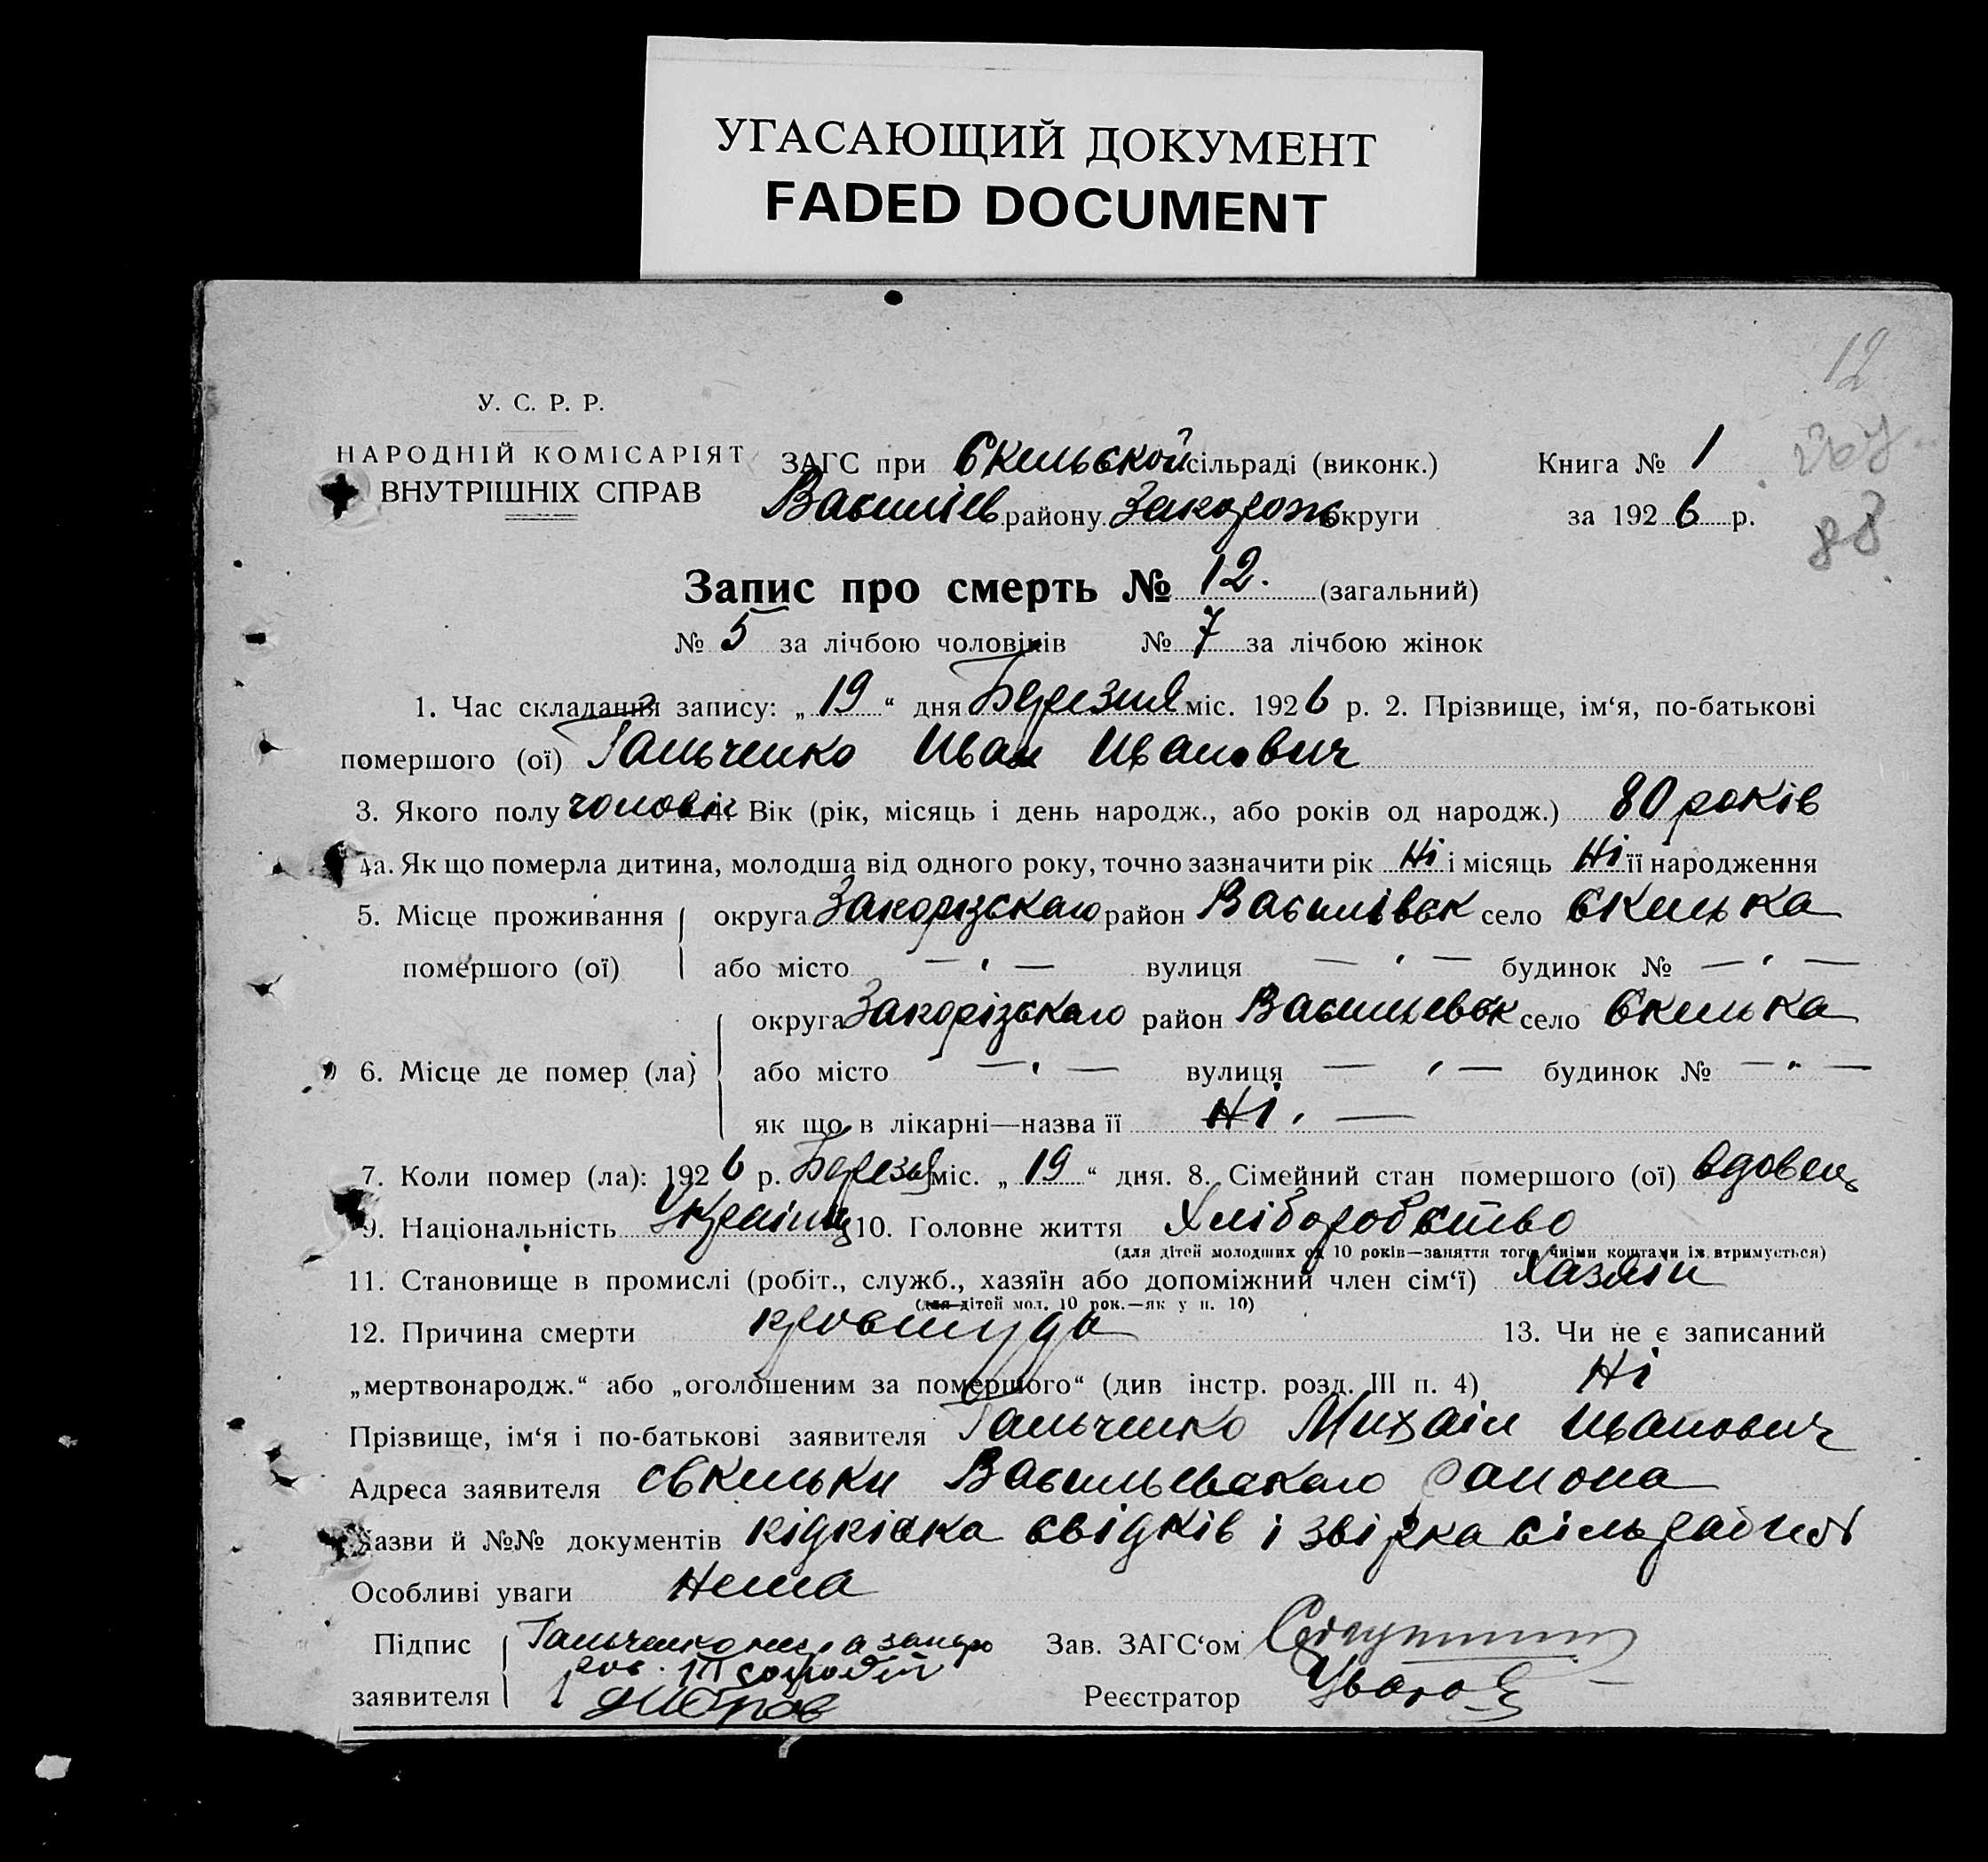 УГАСАЮЩИЙ ДОКУМЕНТ
FADED DOCUMENT
12
У. С. Р. Р.
НАРОДНІЙ КОМІСАРІЯТ
ВНУТРІШНІХ СПРАВ
ЗАГС при Скельской сільраді (виконк.) Книга № 1
Василів району Запорож округи за 1926 р.
88
Запис про смерть № 12. (загальний)
№ 5 за лічбою чоловіків № 7 за лічбою жінок
1. Час складання запису: „19“ дня Березня міс. 1926 р. 2. Прізвище, ім‘я, по-батькові
помершого (ої) Гальченко Иван Иванович
3. Якого полу чоловік 4. Вік (рік, місяць і день народж., або років од народж.) 80 років
4а. Як що померла дитина, молодша від одного року, точно зазначити рік Ні і місяць Ні її народження
5. Місце проживання округа Запорізскаго район Василівск село Скелька
помершого (ої) або місто — „ — вулиця — „ — будинок № — „ —
округа Запорізскаго район Васильевск село Скелька
6. Місце де помер (ла) або місто — „ — вулиця — „ — будинок № — „ —
як що в лікарні—назва її Ні. —
7. Коли помер (ла): 1926 р. Березня міс. „19“ дня. 8. Сімейний стан помершого (ої) вдовец
9. Національність Украінец 10. Головне життя Хліборобство
(для дітей молодших од 10 років—заняття того, чиїми коштами їх втримується)
11. Становище в промислі (робіт., служб., хазяїн або допоміжний член сім‘ї) Хазяін
(для дітей мол. 10 рок.—як у п. 10)
12. Причина смерти простуда 13. Чи не є записаний
„мертвонародж.“ або „оголошеним за помершого“ (див інстр. розд. III п. 4) Ні
Прізвище, ім‘я і по-батькові заявителя Гальченко Михаіл Иванович
Адреса заявителя с Скельки Васильевскаго района
Назви й №№ документів підпіска свідків і звірка
Особливі уваги Нема
Підпис Гальченко
заявителя
Зав. ЗАГС‘ом
Реєстратор